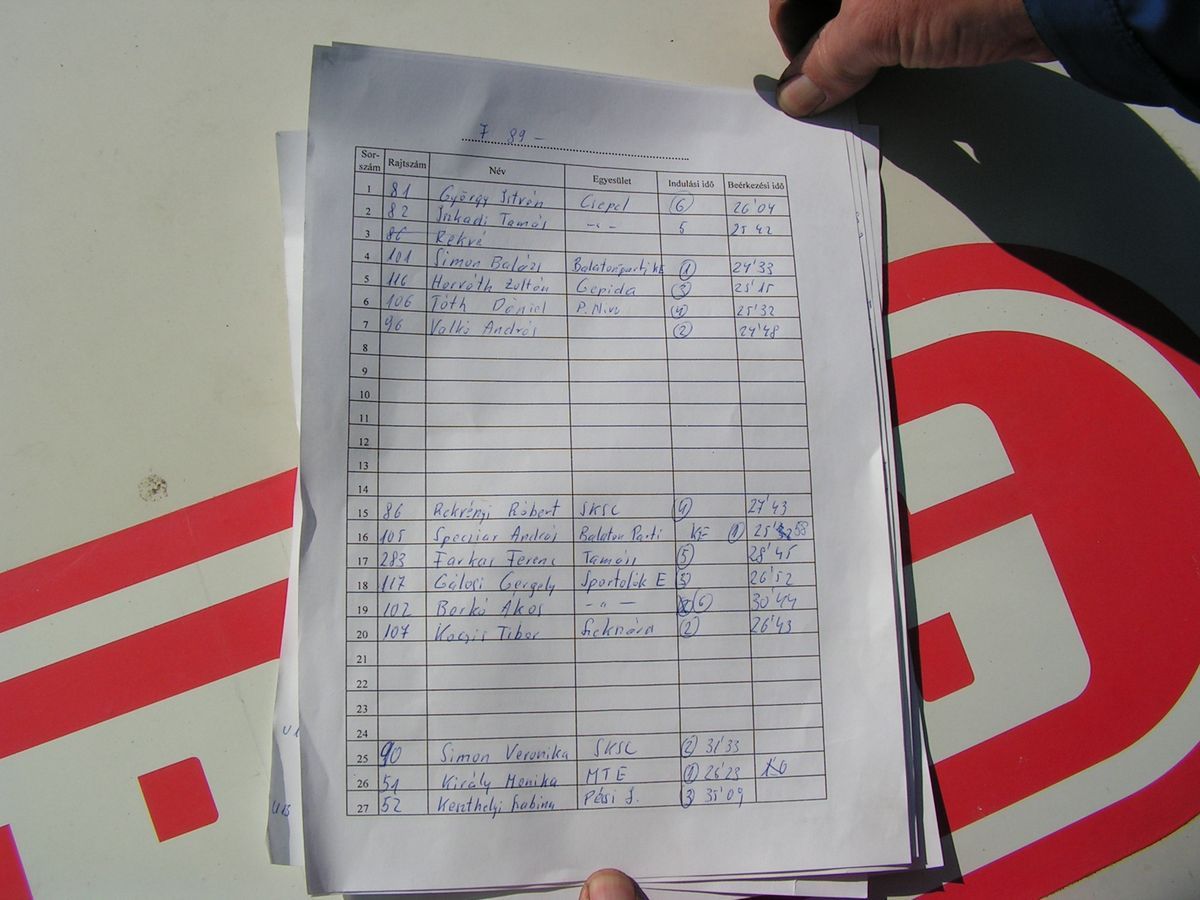 7 89 -
Sor-szám Rajtszám Név Egyesület Indulási idő Beérkezési idő
1 81 György István Csepel 6 26'04
2 82 Tamás -"- 5 25'42
3 86 Rekvé
4 101 Simon Balázs Balatonparti KE 1 24'33
5 116 Horváth Zoltán Gepida 3 25'15
6 106 Tóth Dániel P. 4 25'32
7 96 Valkó András 2 24'48
8
9
10
11
12
13
14
15 86 Rekvényi Róbert SKSC 4 27'43
16 105 Speciár András Balaton Parti KE 1 25'58
17 283 Farkas Ferenc Tamási 5 28'45
18 117 Gálosi Gergely Sportolók E 3 26'52
19 102 Borkó Ákos -"- 6 30'44
20 107 Kocsis Tibor 2 26'43
21
22
23
24
25 90 Simon Veronika SKSC 2 31'33
26 51 Király Monika MTE 1 26'23
27 52 Keszthelyi Sabina Pécsi 3 35'09